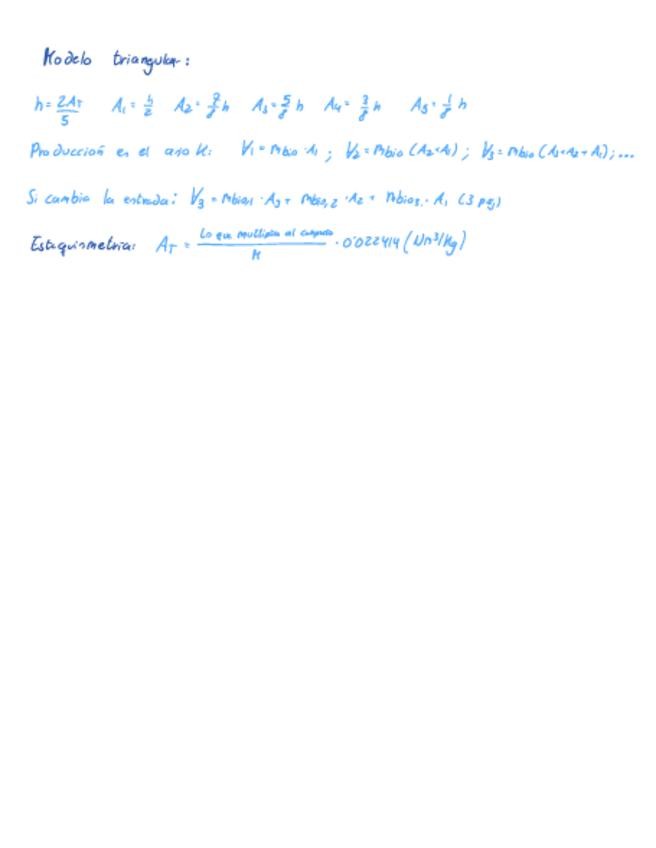 Modelo triangular:
h = 2A_T/5 A₁ = h/2 A₂ = 7/8 h A₃ = 5/8 h A₄ = 3/8 h A₅ = 1/8 h
Producción en el año K: V₁ = mbio · A₁ ; V₂ = mbio (A₂+A₁) ; V₃ = mbio (A₃+A₂+A₁) ; ...
Si cambia la entrada: V₃ = mbio,1 · A₃ + mbio,2 · A₂ + mbio,3 · A₁ (3 pej)
Estequiometria: A_T = Lo que multiplica al compuesto/M · 0'022414 (Nm³/Kg)